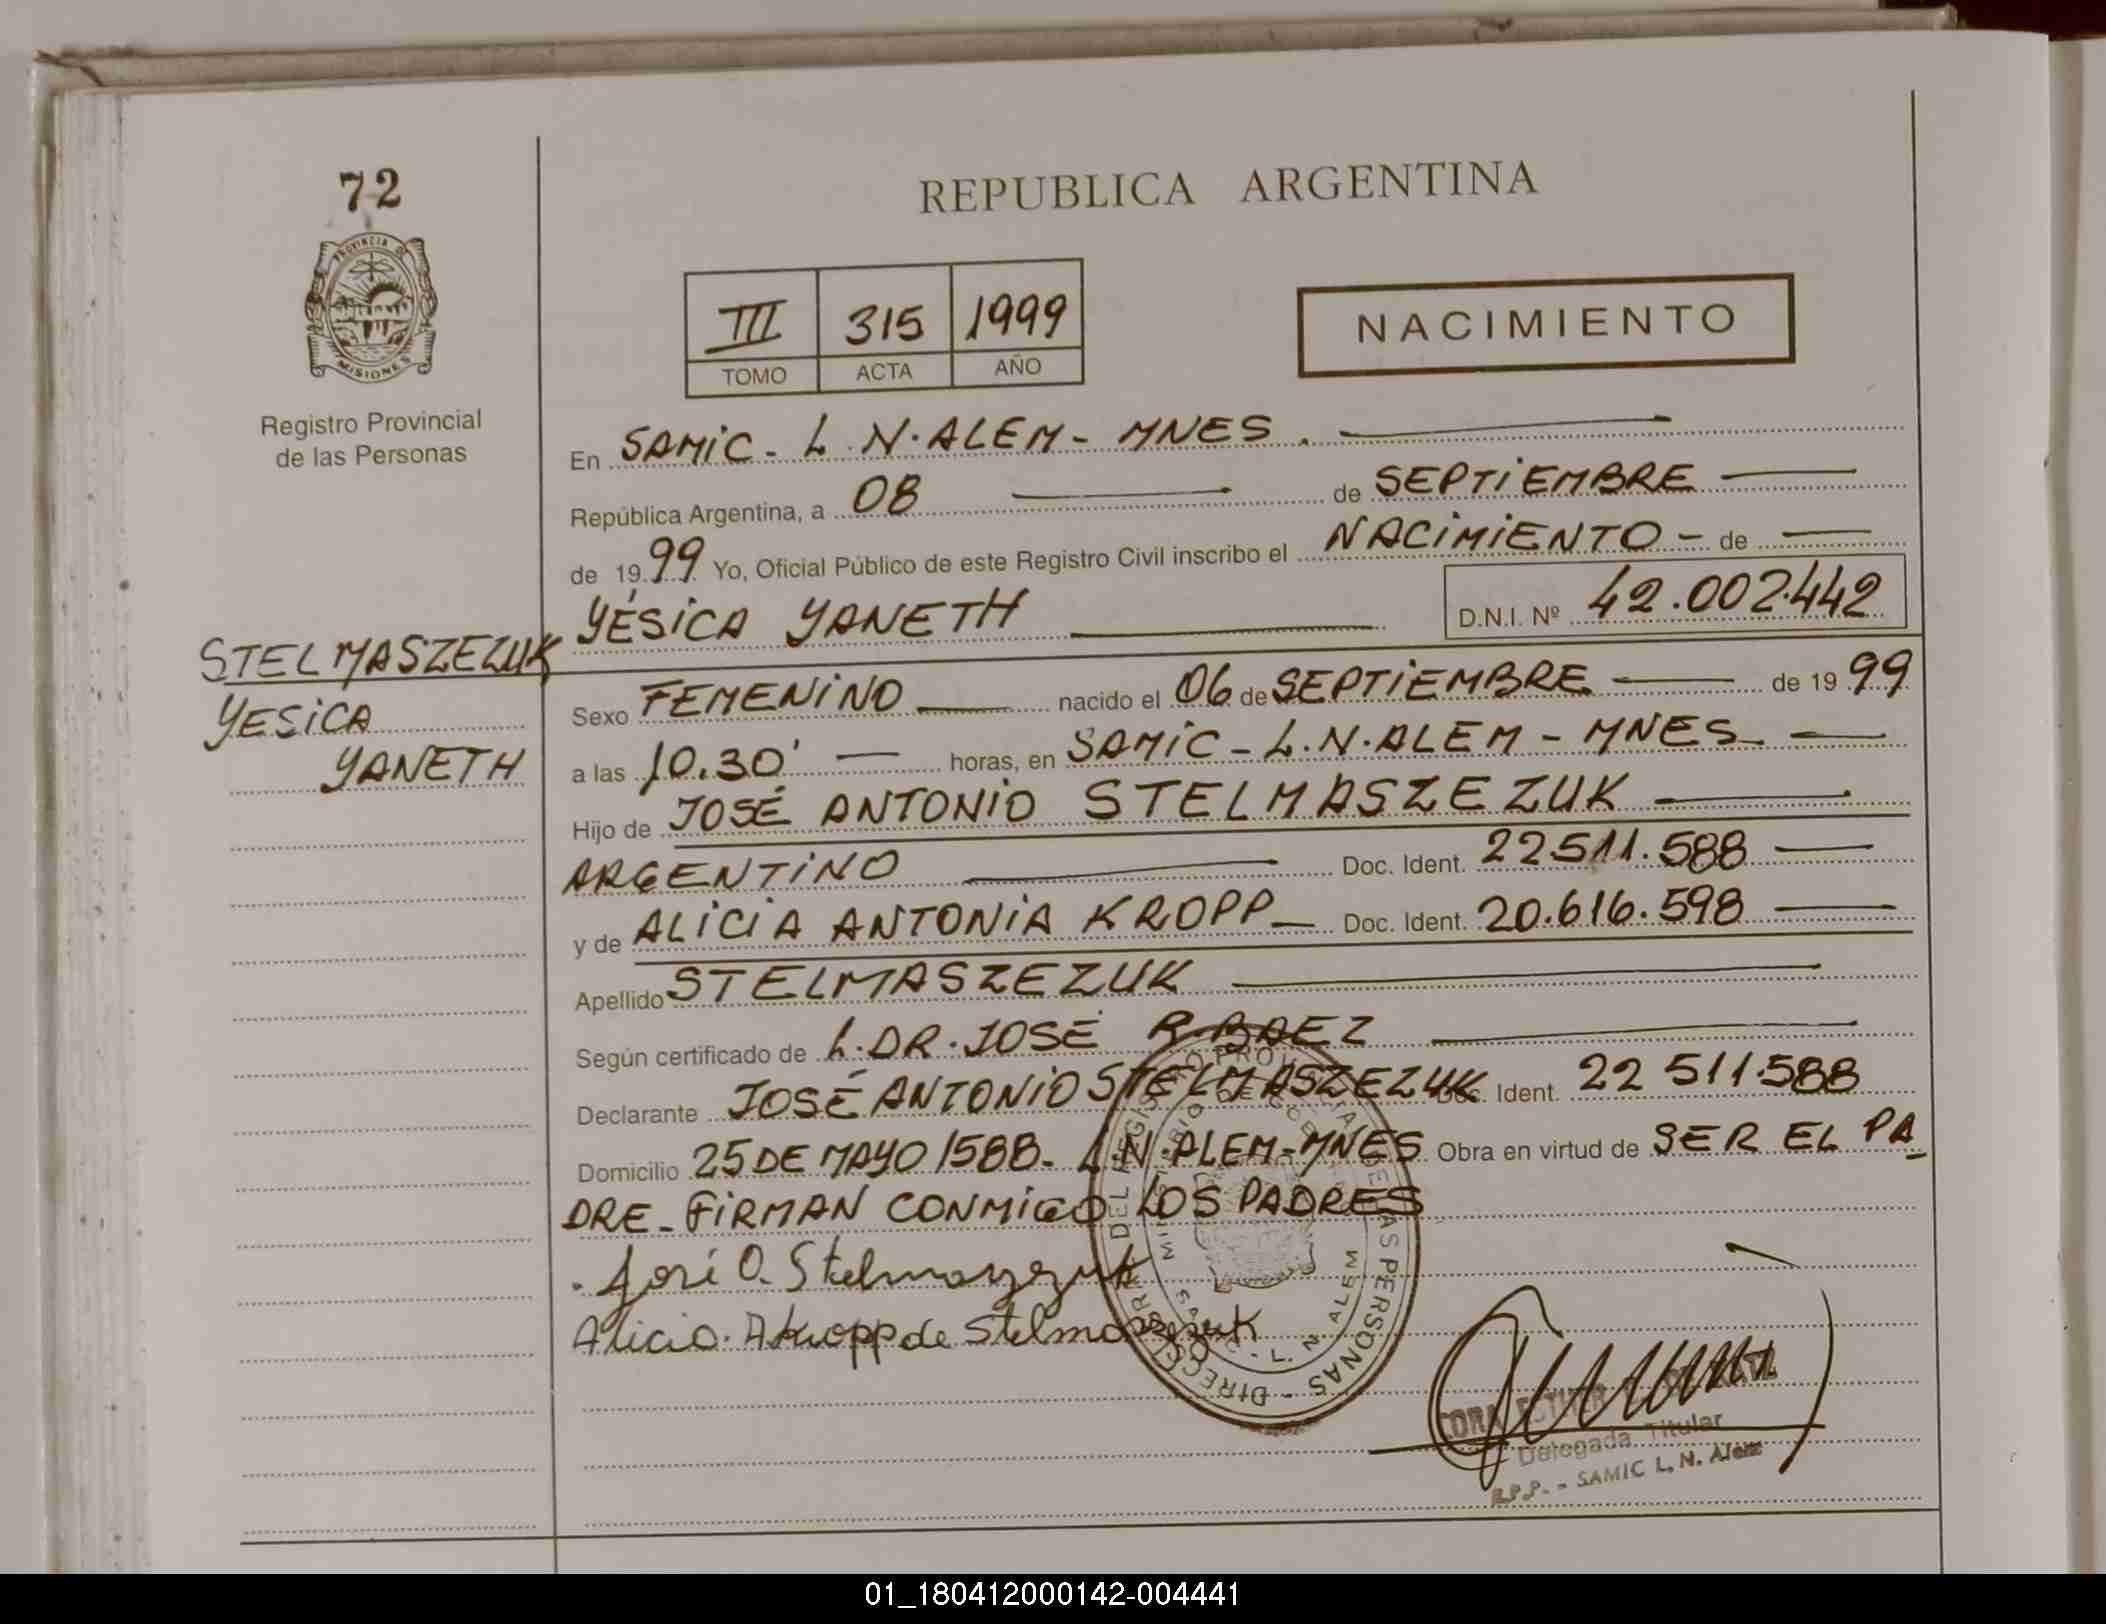 72
PROVINCIA DE
MISIONES
Registro Provincial
de las Personas
REPUBLICA ARGENTINA
III 315 1999
TOMO ACTA AÑO
NACIMIENTO
En SAMIC - L.N. ALEM - MNES.
República Argentina, a 08 de SEPTIEMBRE
de 1999 Yo, Oficial Público de este Registro Civil inscribo el NACIMIENTO - de
YÉSICA YANETH D.N.I. Nº 42.002.442
STELMASZEZUK
YESICA
YANETH
Sexo FEMENINO nacido el 06 de SEPTIEMBRE de 1999
a las 10.30' horas, en SAMIC - L.N. ALEM - MNES
Hijo de JOSÉ ANTONIO STELMASZEZUK
ARGENTINO Doc. Ident. 22511.588
y de ALICIA ANTONIA KROPP Doc. Ident. 20.616.598
Apellido STELMASZEZUK
Según certificado de L. DR. JOSÉ R. BAEZ
Declarante JOSÉ ANTONIO STELMASZEZUK Doc. Ident. 22 511.588
Domicilio 25 DE MAYO 1588 - L.N. ALEM - MNES Obra en virtud de SER EL PA
DRE - FIRMAN CONMIGO LOS PADRES
José A. Stelmaszezuk
Alicia A Kropp de Stelmaszezuk
DEL REGISTRO PROVINCIAL DE LAS PERSONAS
L. N. ALEM
Delegada Titular
R.P.P. - SAMIC L. N. Alem
01_180412000142-004441